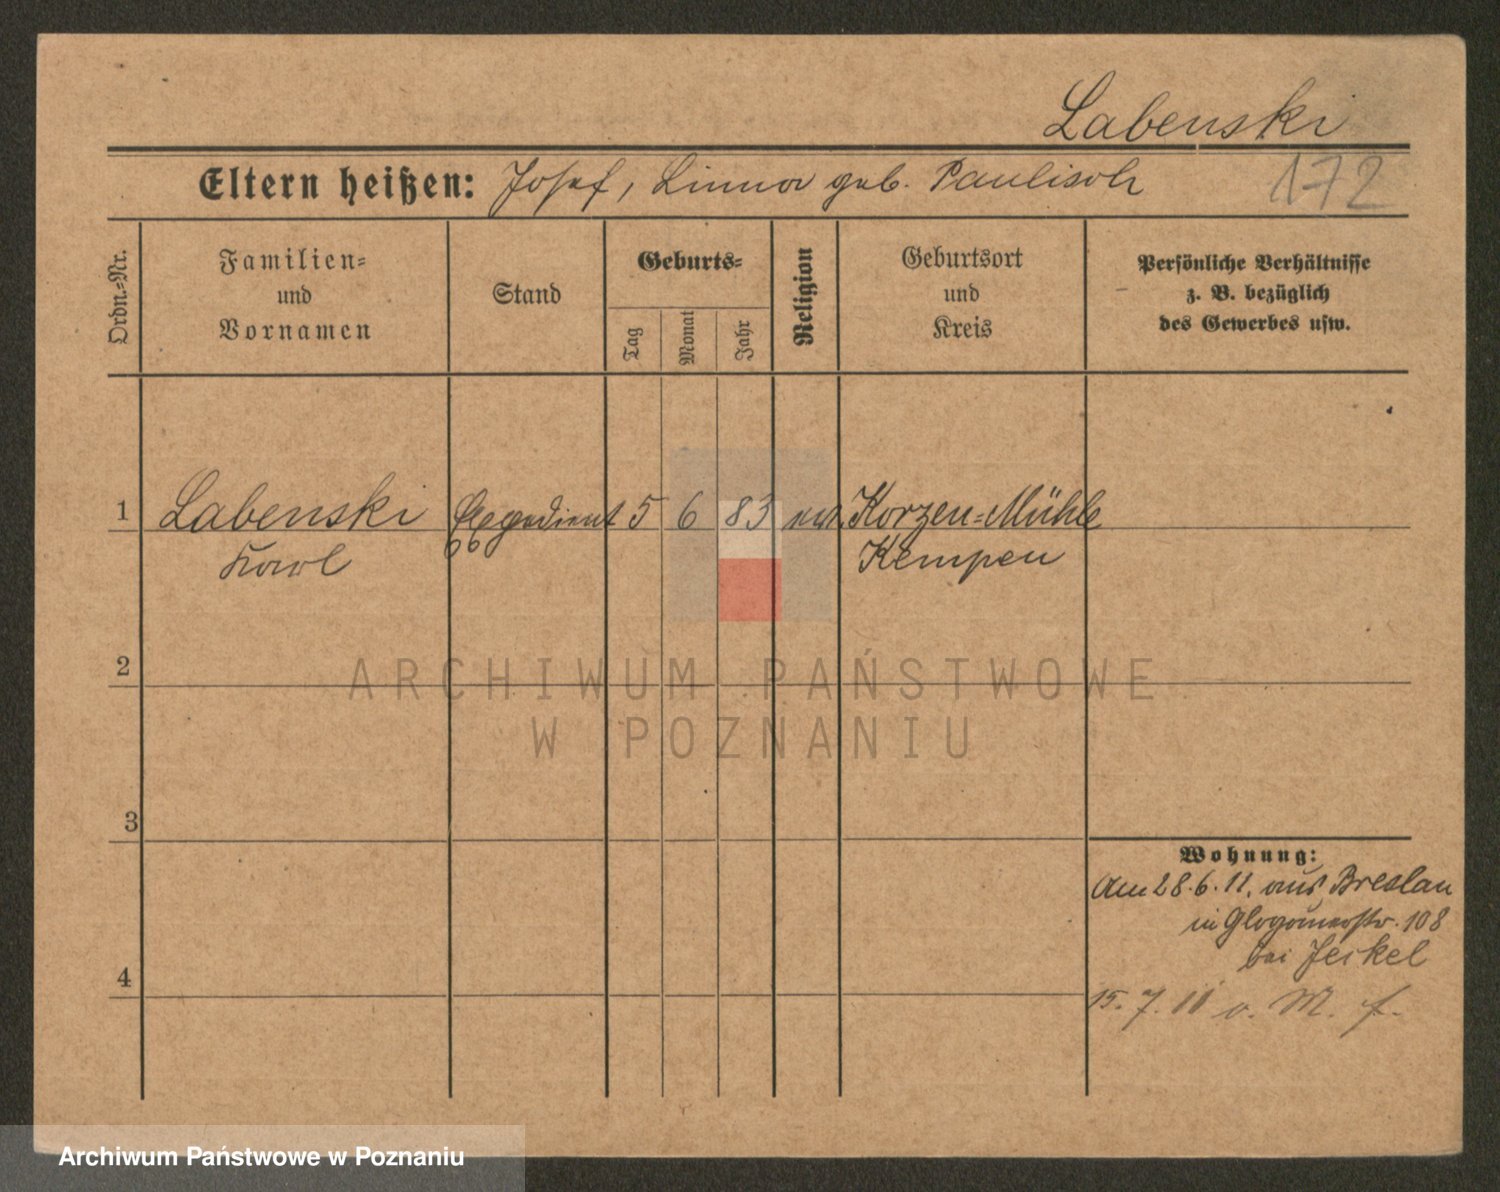 Labenski
172
Eltern heißen: Josef, Linna geb. Paulisch
Ordn.=Nr.
Familien=
und
Vornamen
Stand
Geburts=
Tag
Monat
Jahr
Religion
Geburtsort
und
Kreis
Persönliche Verhältnisse
z. B. bezüglich
des Gewerbes usw.
1 Labenski Expedient 5 6 83 Korzen=Mühle
Karl Kempen
2
3
4
Wohnung:
Am 28.6.11. aus Breslau
in Glogauerstr. 108
bei Jeikel
15.7.11 v. M. f.
ARCHIWUM PAŃSTWOWE
W POZNANIU
Archiwum Państwowe w Poznaniu